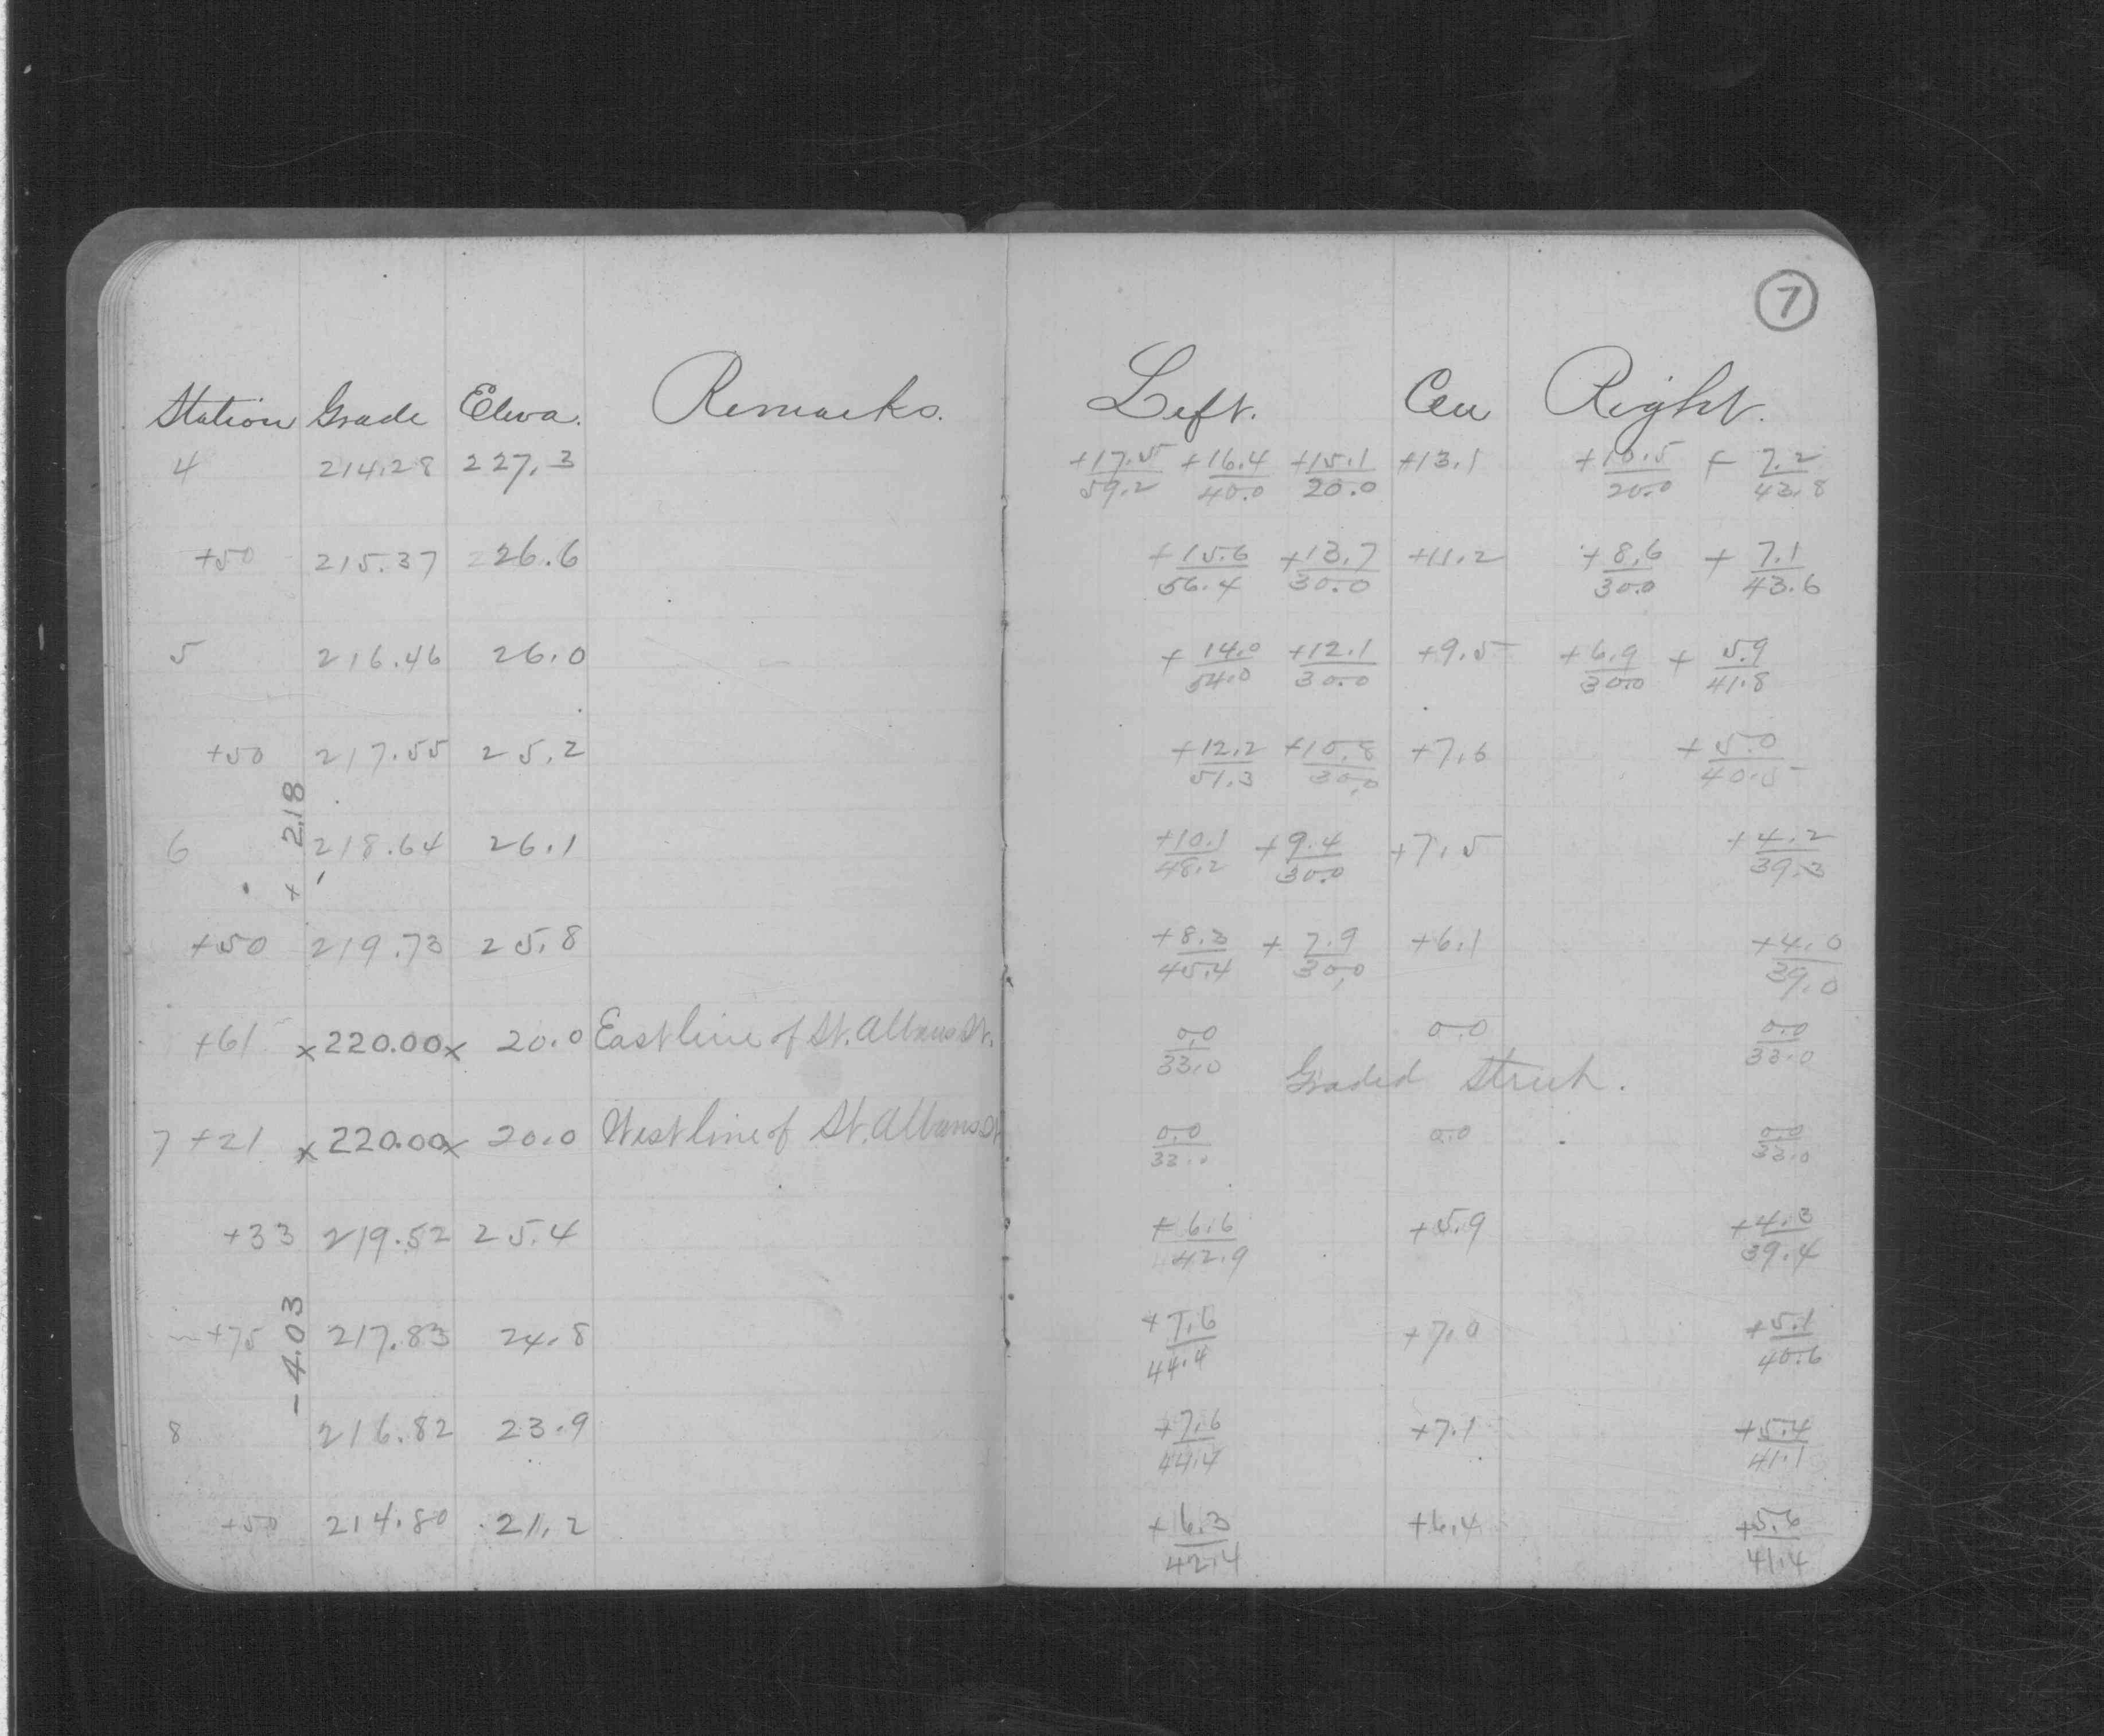 7
Station Grade Eleva. Remarks. Left. Cen Right.
4 214.28 227.3 +17.5/59.2 +16.4/40.0 +15.1/20.0 +13.1 +10.5/20.0 + 7.2/43.8
+50 215.37 226.6 +15.6/56.4 +13.7/30.0 +11.2 +8.6/30.0 + 7.1/43.6
5 216.46 26.0 +14.0/54.0 +12.1/30.0 +9.5 +6.9/30.0 + 5.9/41.8
+50 217.55 25.2 +12.2/51.3 +10.8/30.0 +7.6 +5.0/40.5
+ 2.18
6 218.64 26.1 +10.1/48.2 +9.4/30.0 +7.5 +4.2/39.3
+50 219.73 25.8 +8.3/45.4 + 7.9/30.0 +6.1 +4.0/39.0
+61 x220.00x 20.0 East line of St. Albans St. 0.0/33.0 0.0 0.0/33.0
Graded Street.
7 +21 x220.00x 20.0 West line of St. Albans St 0.0/33.0 0.0 0.0/33.0
+33 219.52 25.4 +6.6/42.9 +5.9 +4.3/39.4
- 4.03
+75 217.83 24.8 +7.6/44.4 +7.0 +5.1/40.6
8 216.82 23.9 +7.6/44.4 +7.1 +5.4/41.1
+50 214.80 21.2 +6.3/42.4 +6.4 +5.6/41.4